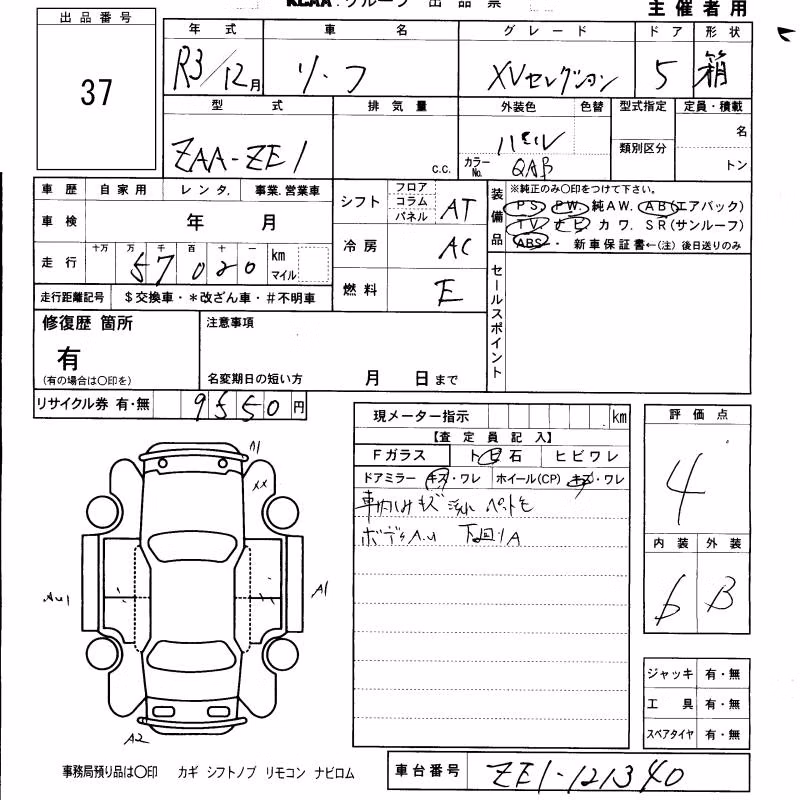 KCAA.グループ 出品票
主催者用
出品番号
37
年式 車名 グレード ドア 形状
R3/12月 リーフ XVセレクション 5 箱
型式 排気量 外装色 色替 型式指定 定員・積載
ZAA-ZE1 C.C. パール 名
カラーNo. QAB 類別区分 トン
車歴 自家用 レンタ. 事業.営業車
車検 年 月
走行 十万 万 千 百 十 一 km マイル
57020
走行距離記号 $交換車・*改ざん車・#不明車
シフト フロア コラム パネル AT
冷房 AC
燃料 E
装備品 ※純正のみ〇印をつけて下さい。
PS. PW. 純AW. AB(エアバック)
TV. ナビ カワ. SR(サンルーフ)
ABS・ 新車保証書←(注)後日送りのみ
セールスポイント
修復歴 箇所
有
(有の場合は〇印を)
注意事項
名変期日の短い方 月 日まで
リサイクル券 有・無 9550円
現メーター指示 km
【査定員記入】
Fガラス ト 石 ヒビワレ
ドアミラー キズ・ワレ ホイール(CP) キズ・ワレ
ペットモ
ボディAu 下回りA
評価点
4
内装 外装
6 B
A1
XX
Au1
A1
A2
ジャッキ 有・無
工具 有・無
スペアタイヤ 有・無
事務局預り品は〇印 カギ シフトノブ リモコン ナビロム
車台番号 ZE1-121340